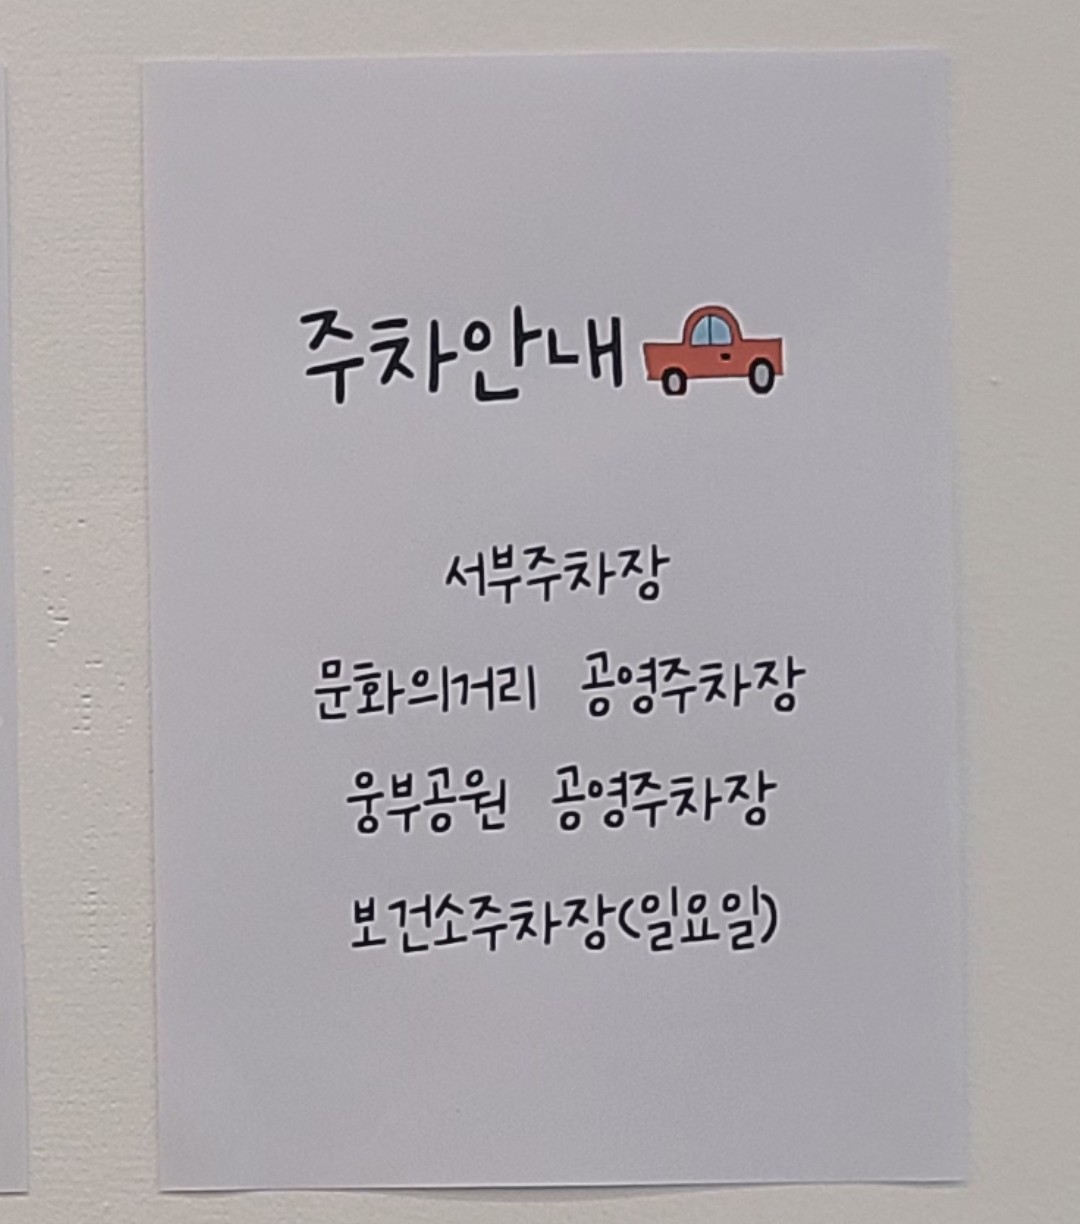 주차안내
서부주차장
문화의거리 공영주차장
웅부공원 공영주차장
보건소주차장(일요일)